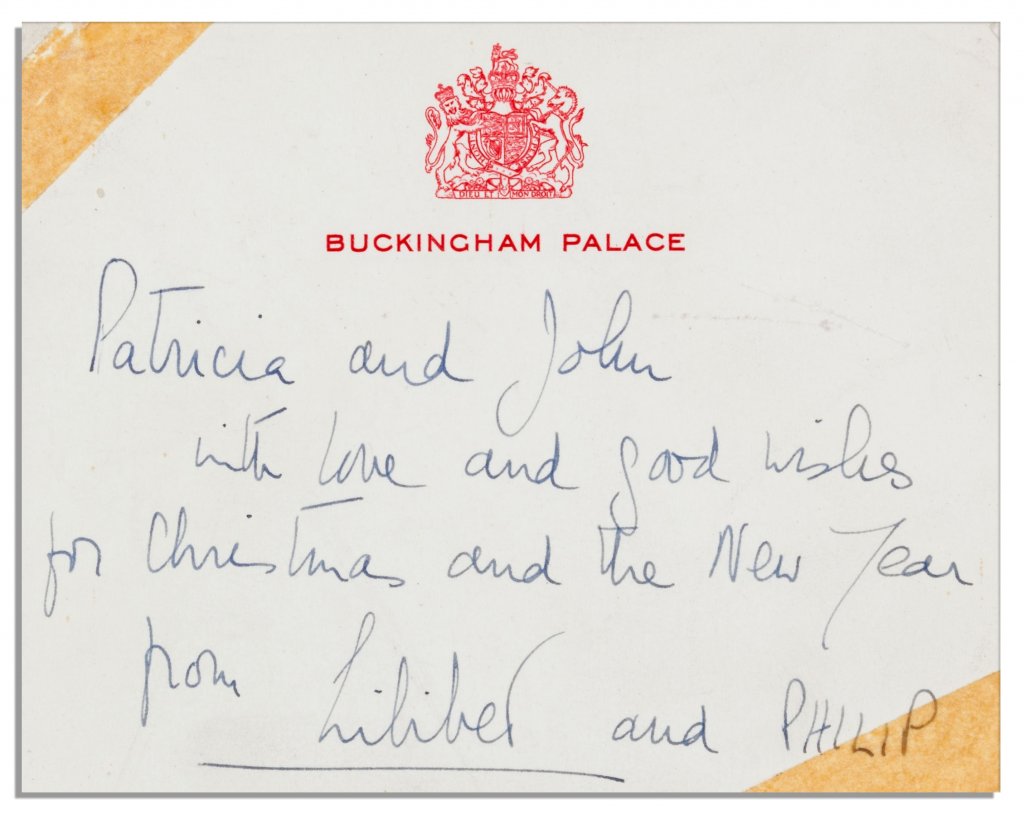 DIEU ET MON DROIT
BUCKINGHAM PALACE
Patricia and John
with love and good wishes
for Christmas and the New Year
from Lilibet and PHILIP